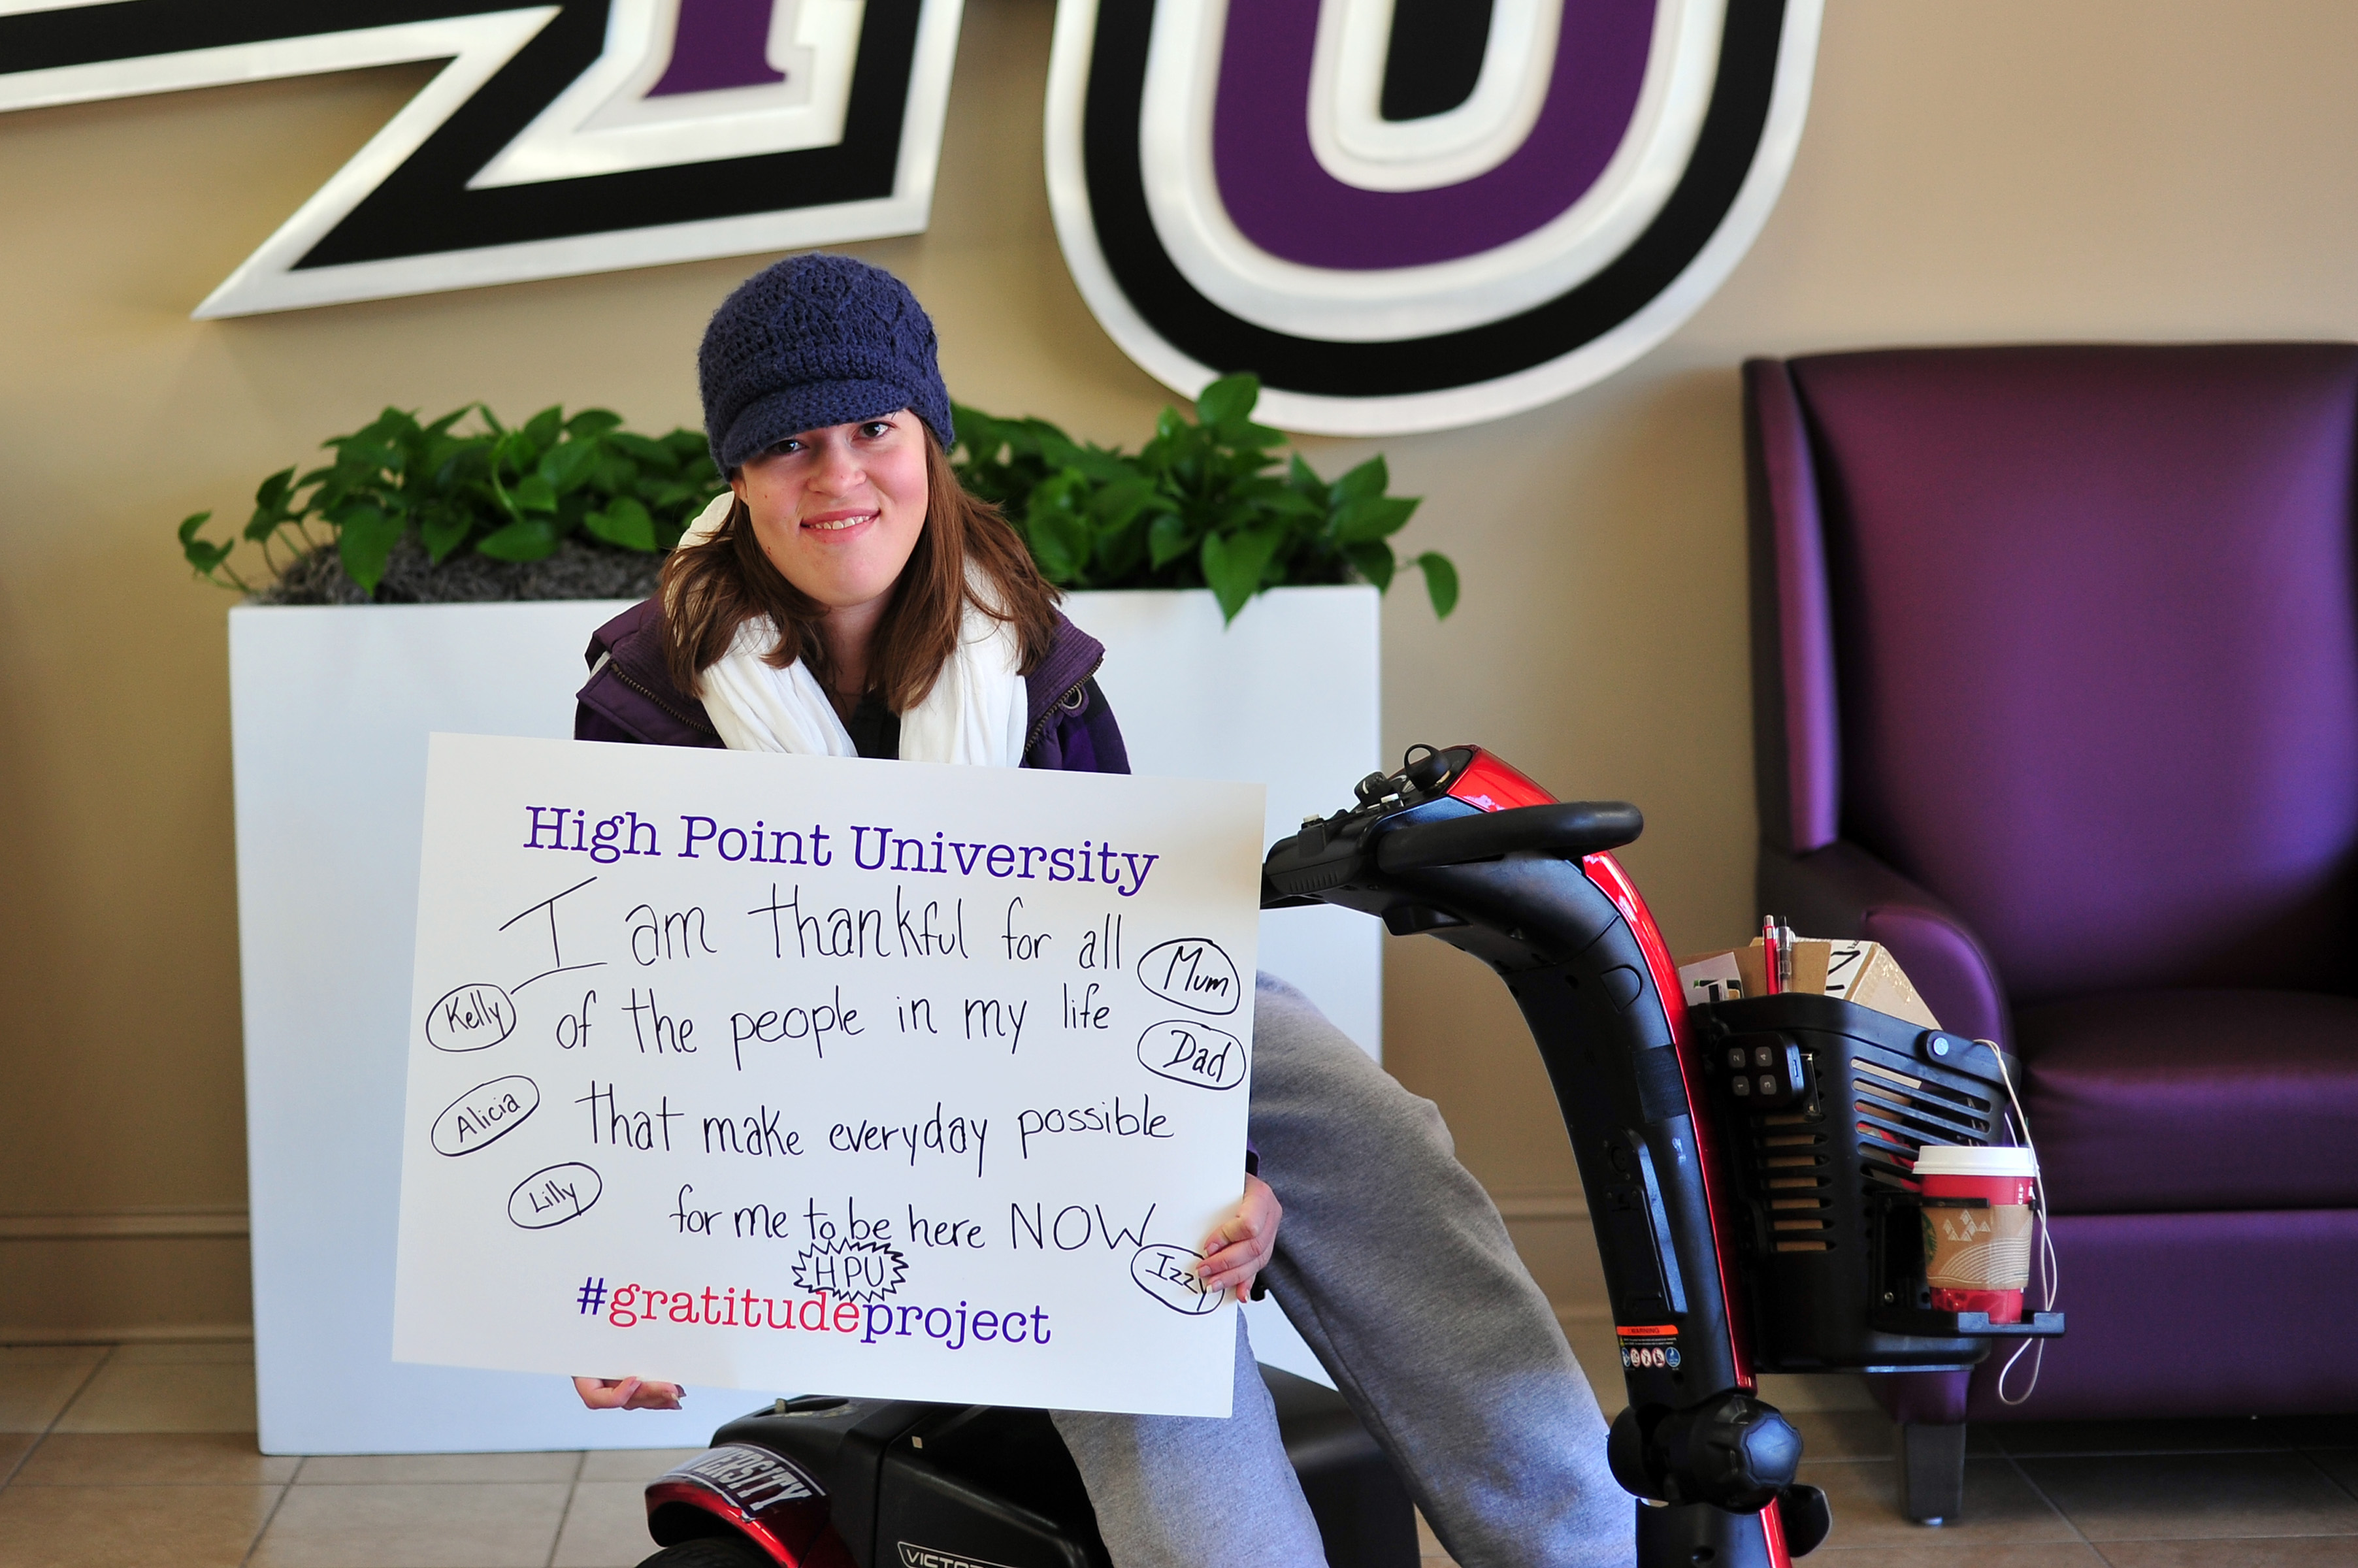 High Point University
I am thankful for all
Mum
Kelly
of the people in my life
Dad
Alicia
that make everyday possible
Lilly
for me to be here NOW
HPU
Izzy
#gratitudeproject
WARNING
2 4
1 3